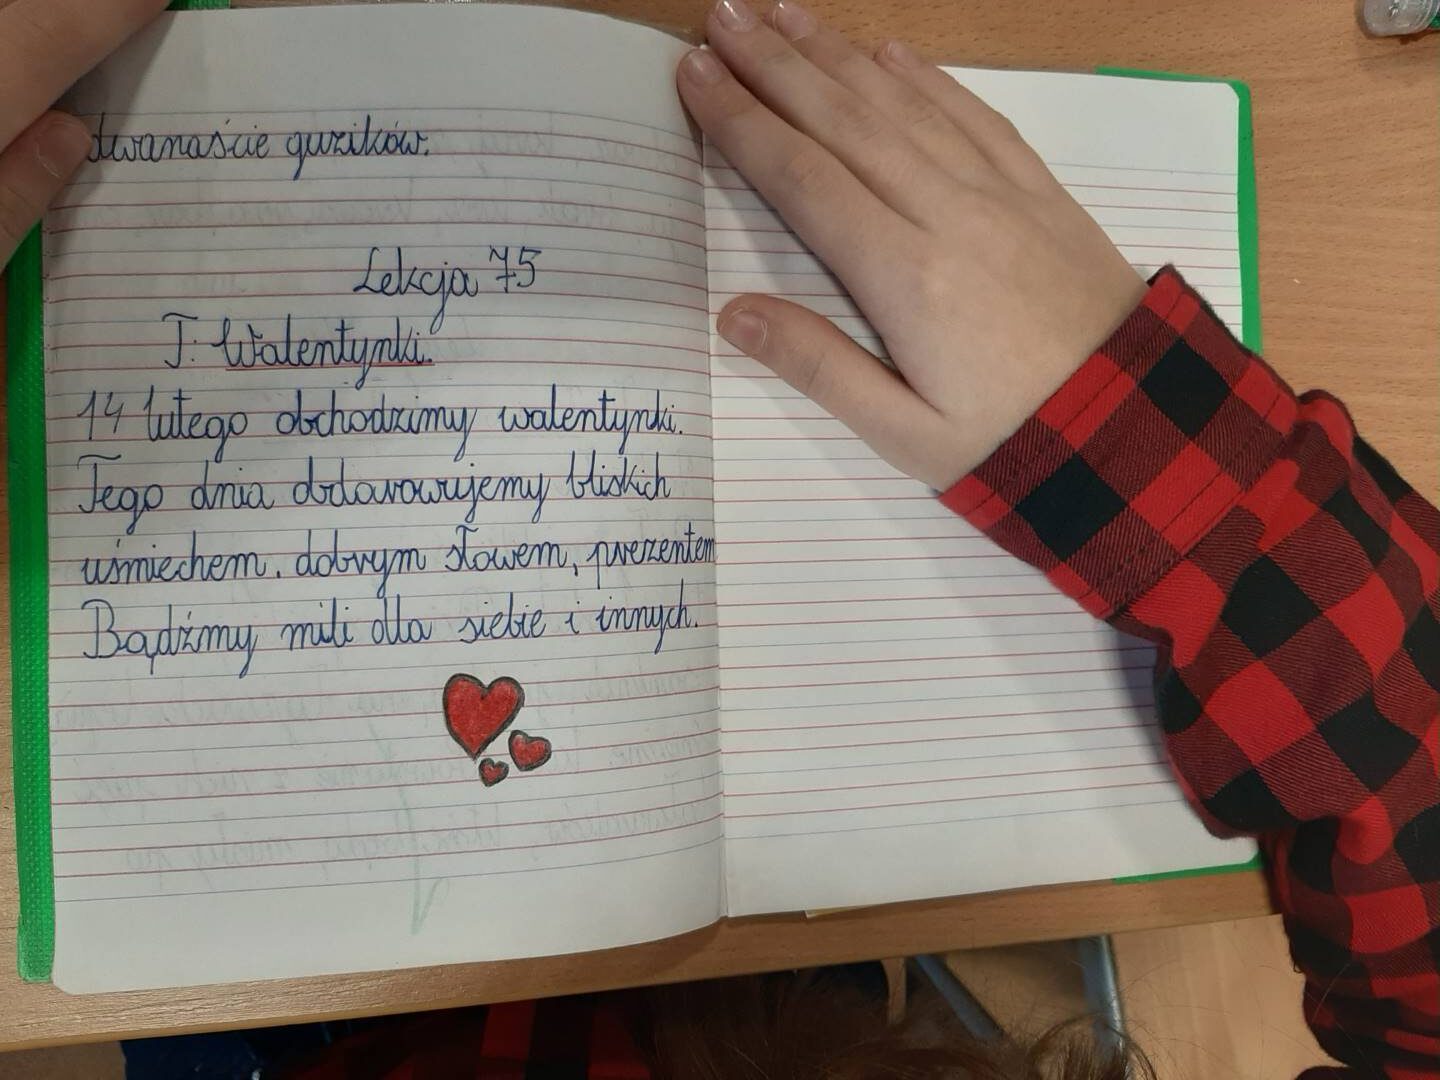 dwanaście guzików.
Lekcja 75
T: Walentynki.
14 lutego obchodzimy walentynki.
Tego dnia obdarowujemy bliskich
uśmiechem, dobrym słowem, prezentem
Bądźmy mili dla siebie i innych.